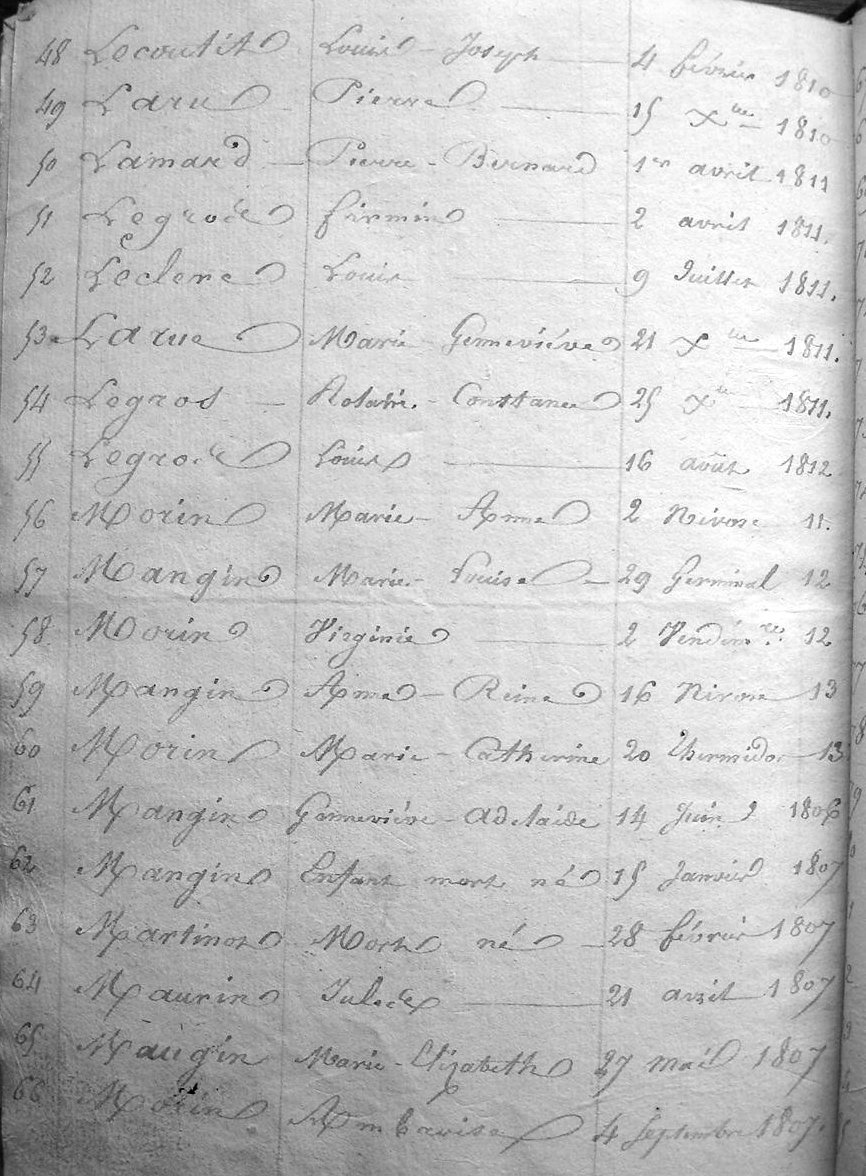 48 Lecoutit Louis - Joseph 4 février 1810
49 Laru Pierre 15 Xbre 1810
50 Lamard Pierre - Bernard 1er avril 1811
51 Legrode firmin 2 avril 1811.
52 Leclerc Louis 9 Juillet 1811.
53 Larue Marie Genneviéve 21 Xbre 1811.
54 Legros Constance 25 Xbre 1811.
55 Legrode Louis 16 août 1812
56 Morin Marie - Anne 2 Nivose 11.
57 Mangin Marie - Louise 29 Germinal 12
58 Morin Virginie 2 Vendém.re 12
59 Mangin Anne - Reine 16 Nivose 13
60 Morin Marie - Catherine 20 Thermidor 13
61 Mangin Genneviéve - Adelaide 14 Juin 1806
62 Mangin Enfant mort né 15 Janvier 1807
63 Martinot Mort né 28 février 1807
64 Maurin 21 avril 1807
65 Maugin Marie - Elizabeth 27 mai 1807
66 Morin 4 Septembre 1807.